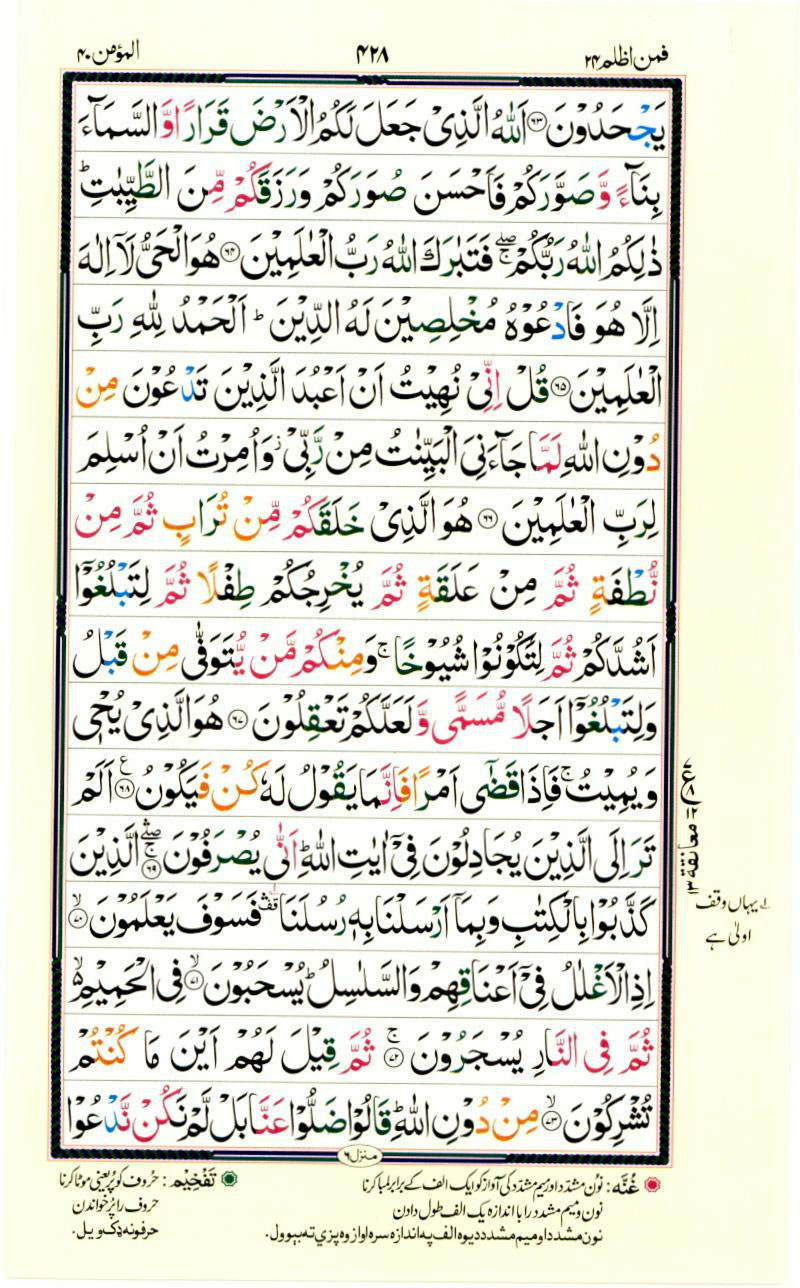 فمن اظلم ۲۴
۴۲۸
المؤمن ۴۰
يَجْحَدُوْنَ ﴿۶۳﴾ اَللّٰهُ الَّذِىْ جَعَلَ لَكُمُ الْاَرْضَ قَرَارًا وَّ السَّمَآءَ
بِنَآءً وَّ صَوَّرَكُمْ فَاَحْسَنَ صُوَرَكُمْ وَ رَزَقَكُمْ مِّنَ الطَّيِّبٰتِ ؕ
ذٰلِكُمُ اللّٰهُ رَبُّكُمْ ۚۖ فَتَبٰرَكَ اللّٰهُ رَبُّ الْعٰلَمِيْنَ ﴿۶۴﴾ هُوَ الْحَىُّ لَاۤ اِلٰهَ
اِلَّا هُوَ فَادْعُوْهُ مُخْلِصِيْنَ لَهُ الدِّيْنَ ؕ اَلْحَمْدُ لِلّٰهِ رَبِّ
الْعٰلَمِيْنَ ﴿۶۵﴾ قُلْ اِنِّىْ نُهِيْتُ اَنْ اَعْبُدَ الَّذِيْنَ تَدْعُوْنَ مِنْ
دُوْنِ اللّٰهِ لَمَّا جَآءَنِىَ الْبَيِّنٰتُ مِنْ رَّبِّىْ ۫ وَ اُمِرْتُ اَنْ اُسْلِمَ
لِرَبِّ الْعٰلَمِيْنَ ﴿۶۶﴾ هُوَ الَّذِىْ خَلَقَكُمْ مِّنْ تُرَابٍ ثُمَّ مِنْ
نُّطْفَةٍ ثُمَّ مِنْ عَلَقَةٍ ثُمَّ يُخْرِجُكُمْ طِفْلًا ثُمَّ لِتَبْلُغُوْۤا
اَشُدَّكُمْ ثُمَّ لِتَكُوْنُوْا شُيُوْخًا ۚ وَ مِنْكُمْ مَّنْ يُّتَوَفّٰى مِنْ قَبْلُ
وَ لِتَبْلُغُوْۤا اَجَلًا مُّسَمًّى وَّ لَعَلَّكُمْ تَعْقِلُوْنَ ﴿۶۷﴾ هُوَ الَّذِىْ يُحْىٖ
وَ يُمِيْتُ ۚ فَاِذَا قَضٰۤى اَمْرًا فَاِنَّمَا يَقُوْلُ لَهٗ كُنْ فَيَكُوْنُ ﴿۶۸﴾ اَلَمْ
تَرَ اِلَى الَّذِيْنَ يُجَادِلُوْنَ فِىْۤ اٰيٰتِ اللّٰهِ ؕ اَنّٰى يُصْرَفُوْنَ ﴿۶۹﴾ الَّذِيْنَ
كَذَّبُوْا بِالْكِتٰبِ وَ بِمَاۤ اَرْسَلْنَا بِهٖ رُسُلَنَا ۛ۫ فَسَوْفَ يَعْلَمُوْنَ ﴿۷۰﴾
اِذِ الْاَغْلٰلُ فِىْۤ اَعْنَاقِهِمْ وَ السَّلٰسِلُ ؕ يُسْحَبُوْنَ ﴿۷۱﴾ فِى الْحَمِيْمِ ۙ۬
ثُمَّ فِى النَّارِ يُسْجَرُوْنَ ﴿۷۲﴾ ثُمَّ قِيْلَ لَهُمْ اَيْنَ مَا كُنْتُمْ
تُشْرِكُوْنَ ﴿۷۳﴾ مِنْ دُوْنِ اللّٰهِ ؕ قَالُوْا ضَلُّوْا عَنَّا بَلْ لَّمْ نَكُنْ نَّدْعُوْا
معانقة ۱۳
یہاں وقف
اولیٰ ہے
منزل ۶
غُنَّه: نون مشدد اور میم مشدد کی آواز کو ایک الف کے برابر لمبا کرنا
نون و میم مشدد را با اندازہ یک الف طول دادن
نون مشدد او میم مشدد دیوه الف په اندازه سره اواز وه پزې ته بېوول.
تَفْخِيْم: حُروف کو پُر یعنی موٹا کرنا
حروف را پُر خواندن
حرفونه ډک ویل.